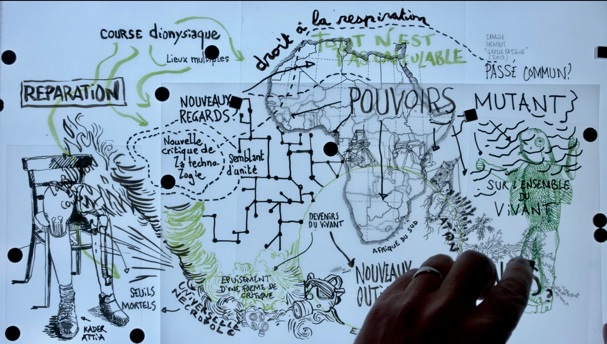 COURSE dionysiaque
Lieux multiples
droit à la respiration
TOUT N'EST
PAS CALCULABLE
PASSÉ COMMUN?
REPARATION
NOUVEAUX
REGARDS?
POUVOIRS
MUTANT}
Nouvelle
critique de
la techno
logie
Semblant
d'unité
SUR L'ENSEMBLE
DU
VIVANT
DEVENIRS
DU VIVANT
AFRIQUE DU SUD
JAPON
NOUVEAUX
OUT
SEUILS
MORTELS
EPUISEMENT
D'UNE FORME DE
CRITIQUE
UNIVERSELLE
NÉCROPOLE
KADER
ATTIA